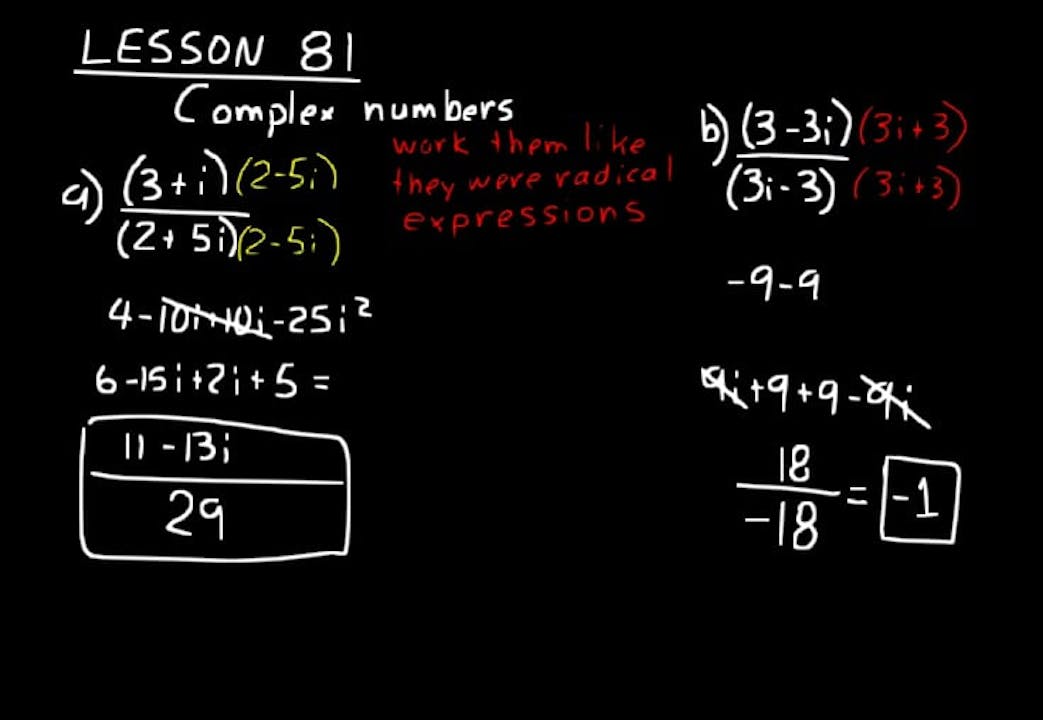 LESSON 81
Complex numbers
work them like
they were radical
expressions
a) (3+i)(2-5i)
(2+5i)(2-5i)
4-10i+10i-25i²
6-15i+2i+5=
11-13i
29
b) (3-3i)(3i+3)
(3i-3)(3i+3)
-9-9
9i+9+9-9i
18
-18
= -1